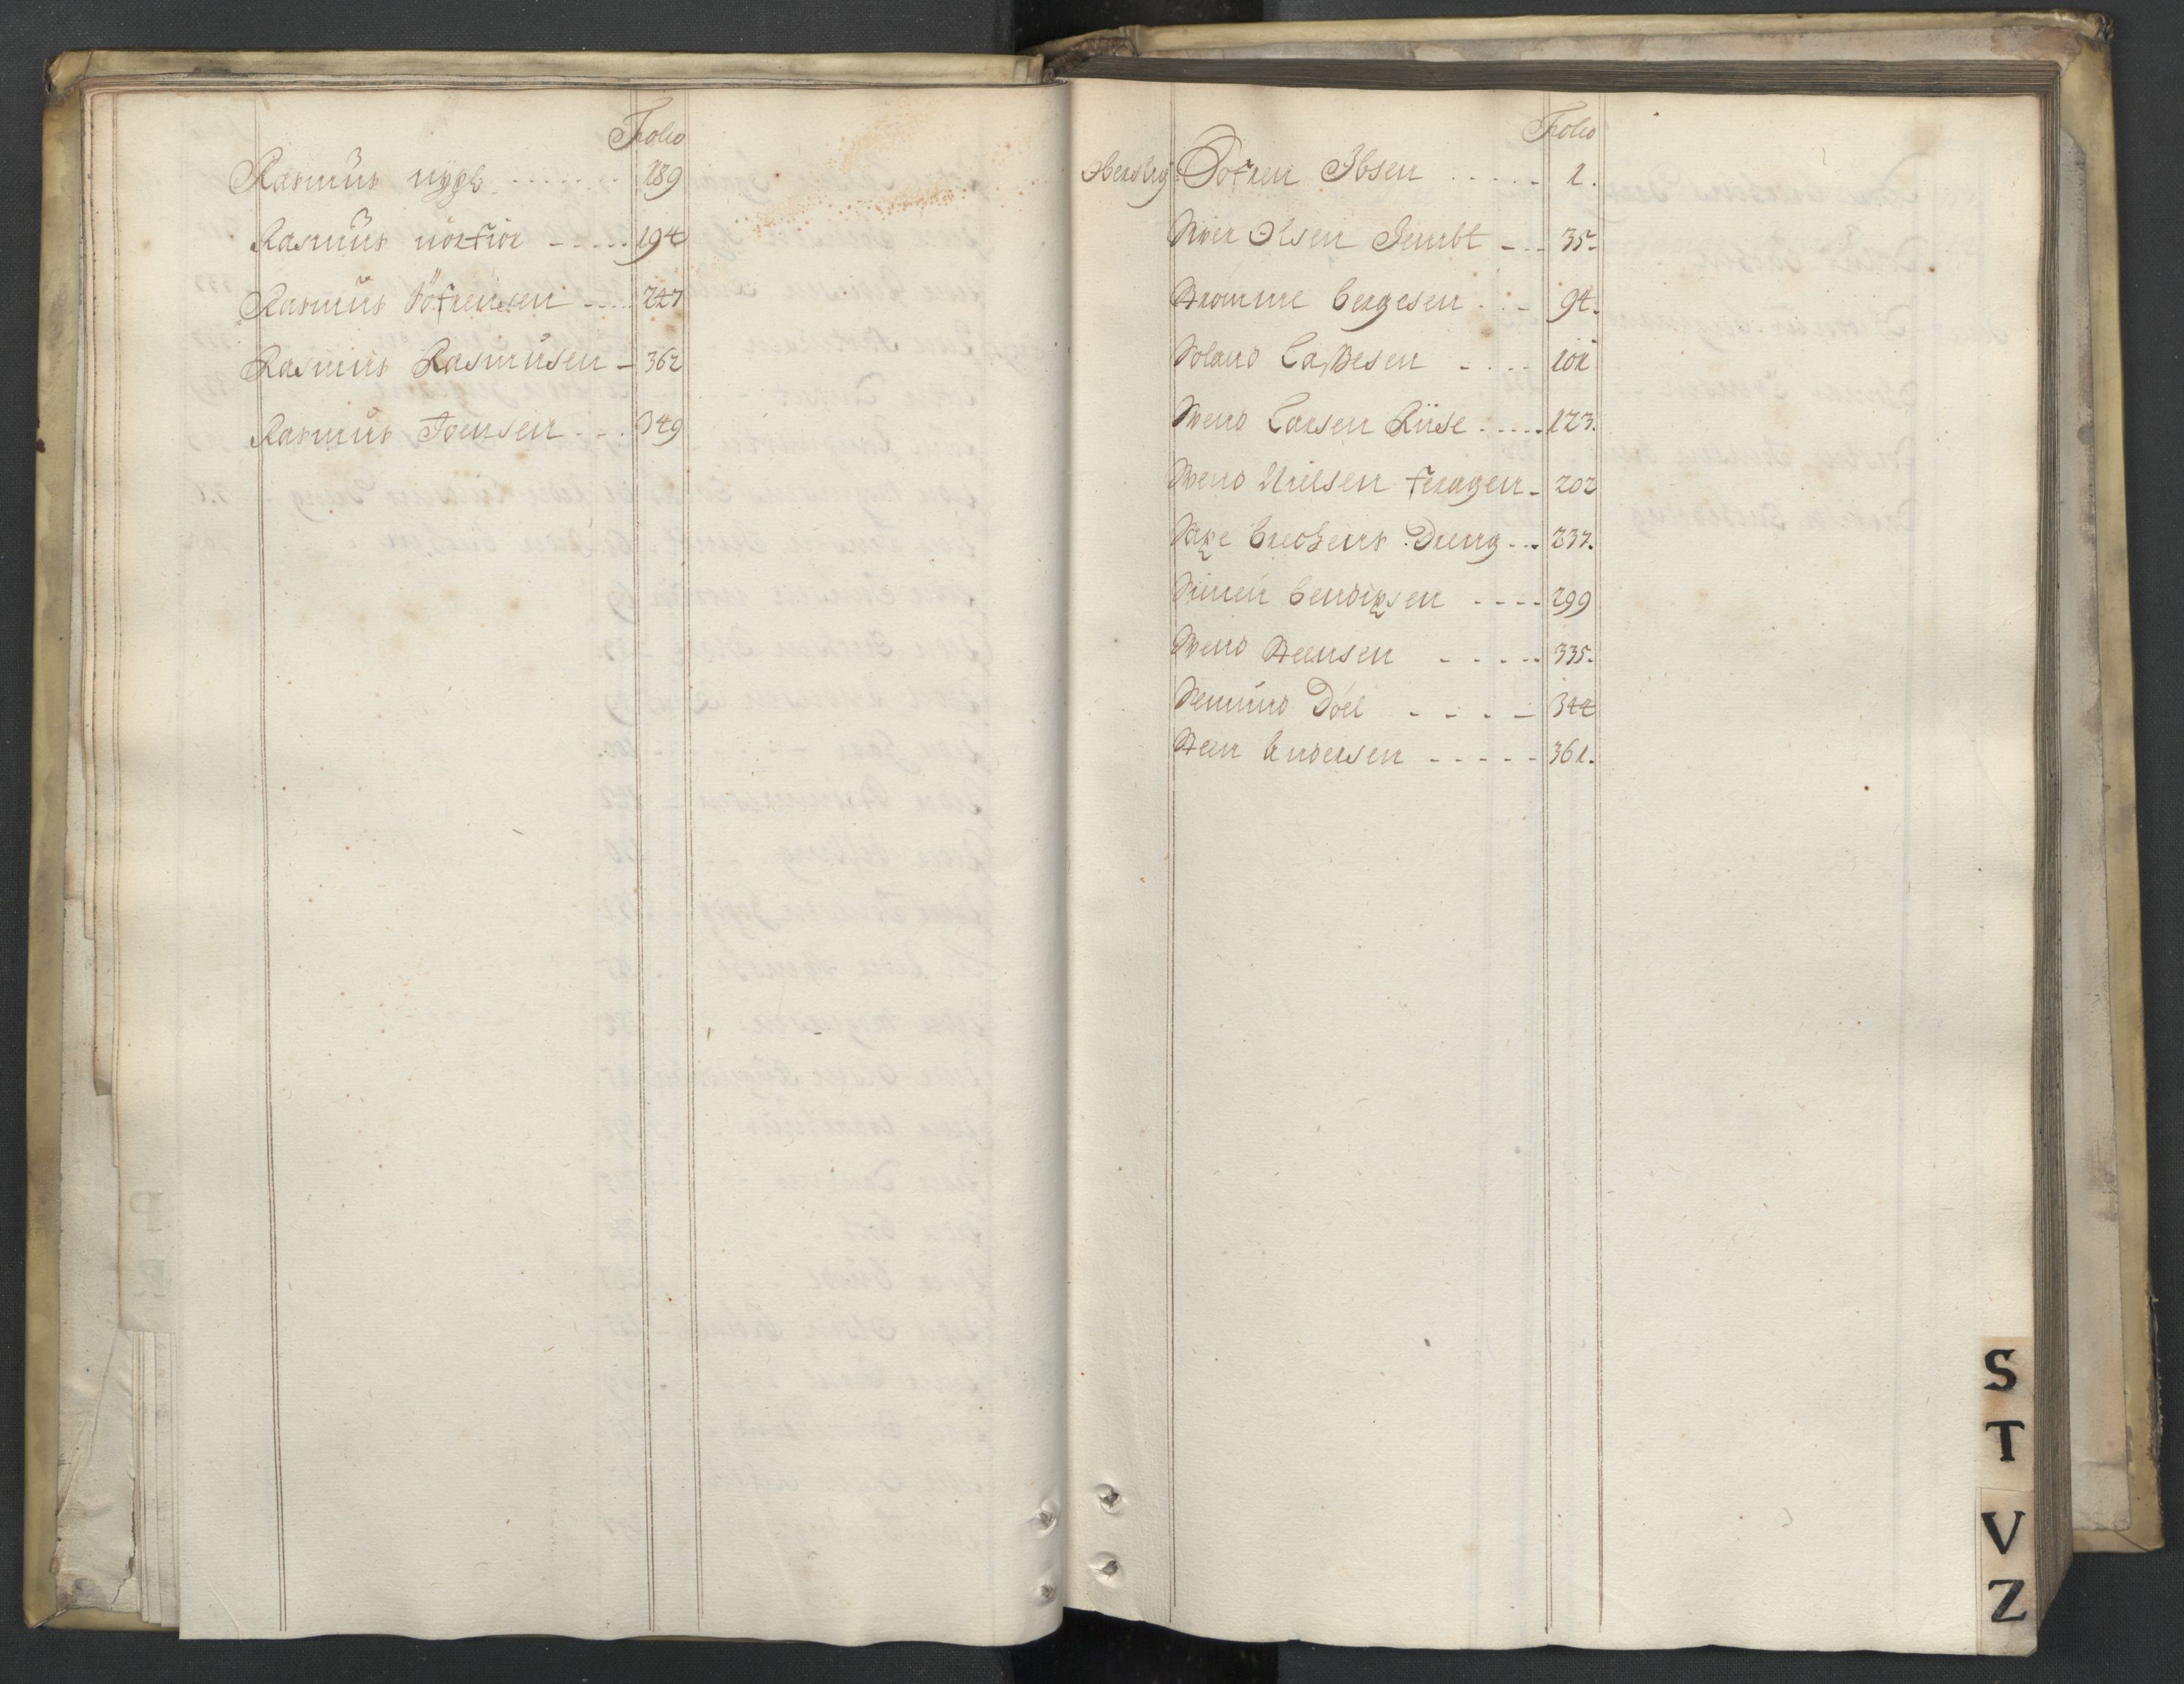 Folio
Rasmus nygb ....... 189
Rasmus nörfiör ..... 194
Rasmus Söfrensen .... 227
Rasmus Rasmusen - 362
Rasmus Joensen ... 349
Folio
Söfren Ibsen ..... 1.
Siver Olsen Sembt --- 35.
Stromme Bergesen ... 94.
Soland Laßesen ..... 101
Svend Larsen Riise ..... 123.
Svend Nielsen feragen - 202
Dreng ... 237.
Simen Bendixsen .... 299
Svend Steensen ..... 335.
Semund Döel .... 344
Steen Andersen ..... 361.
S
T
V
Z